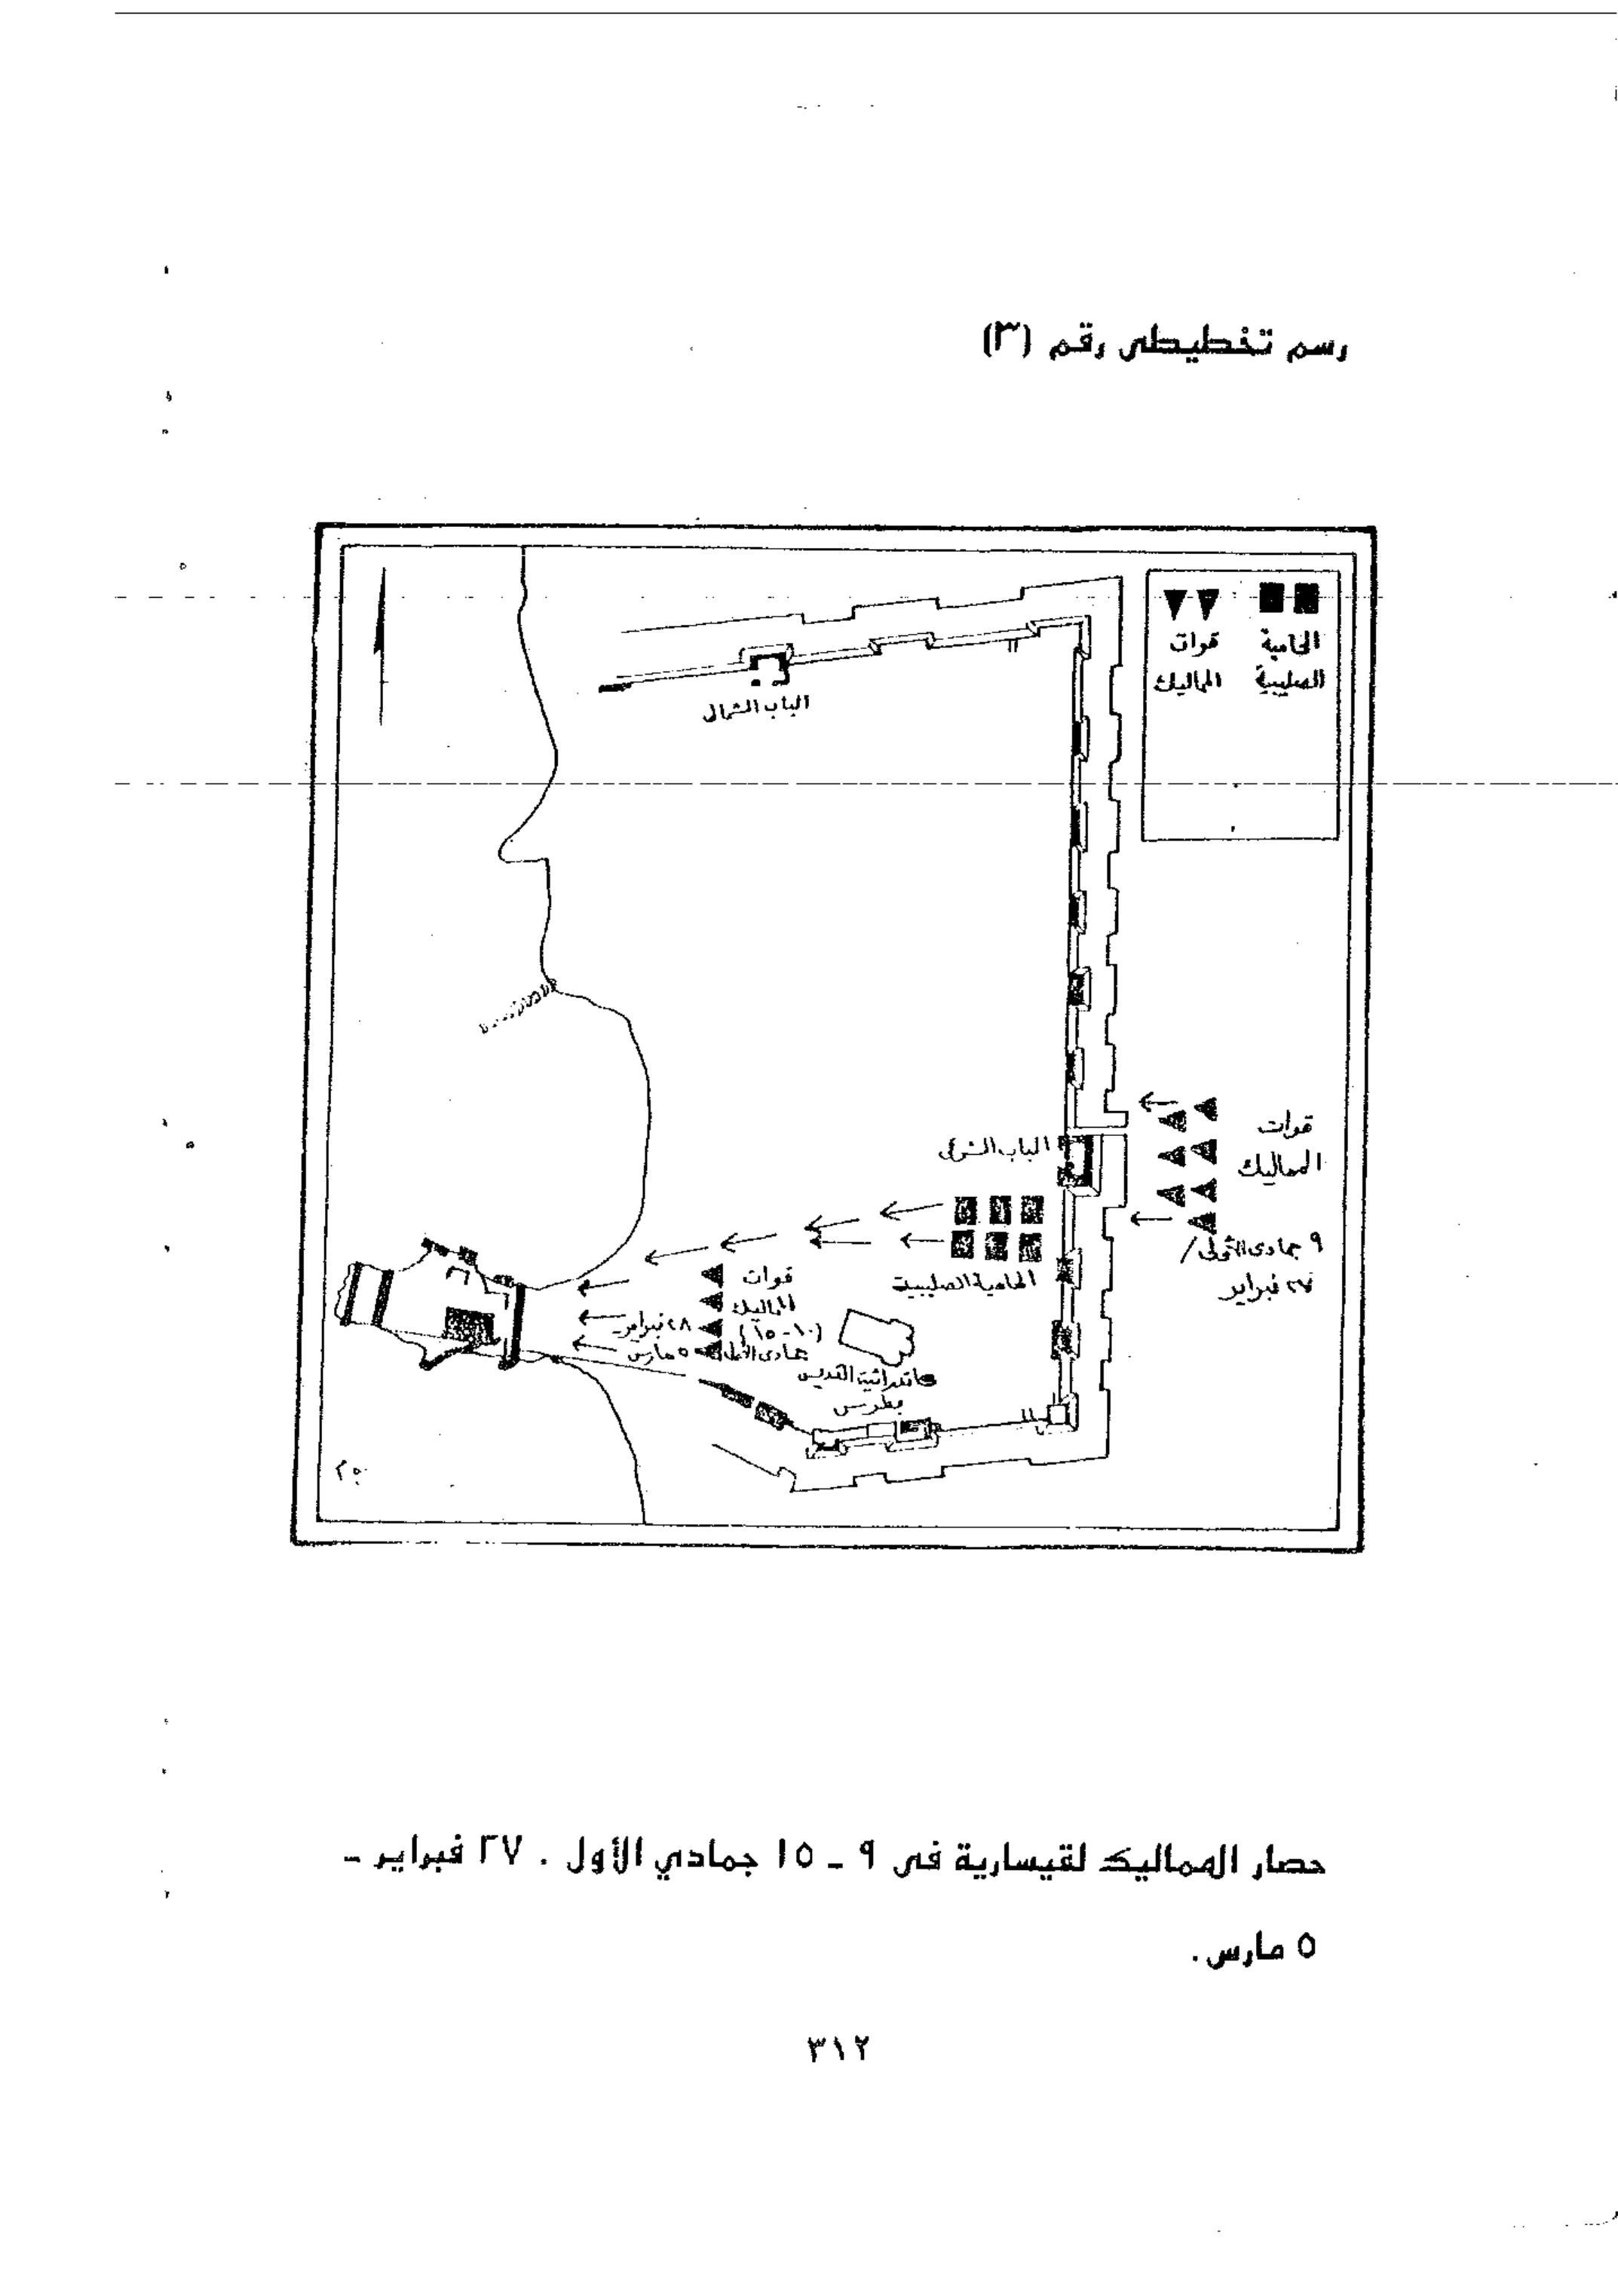 رسم تخطيطى رقم (٣)
الحامية
الصليبية
قوات
المماليك
الباب الشمالى
الباب الشرقى
قوات
المماليك
٩ جمادى الأولى /
٢٧ فبراير
الحامية الصليبية
قوات
المماليك
(١٠ - ١٥) ٢٨ فبراير
جمادى الأولى ٥ مارس
كاتدرائية القديس
بطرس
حصار المماليك لقيسارية فى ٩ - ١٥ جمادي الأول . ٢٧ فبراير -
٥ مارس .
٣١٢